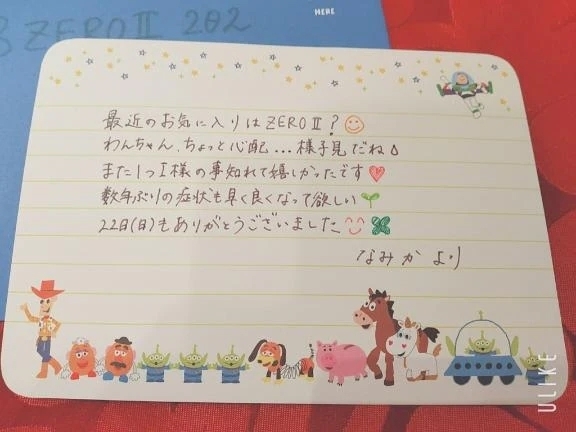 ZERO II 202
HERE
最近のお気に入りはZERO II?
わんちゃん、ちょっと心配...様子見だね
また1つI様の事知れて嬉しかったです
数年ぶりの症状も早く良くなって欲しい
22日(日)もありがとうございました
なみかより
ULIKE